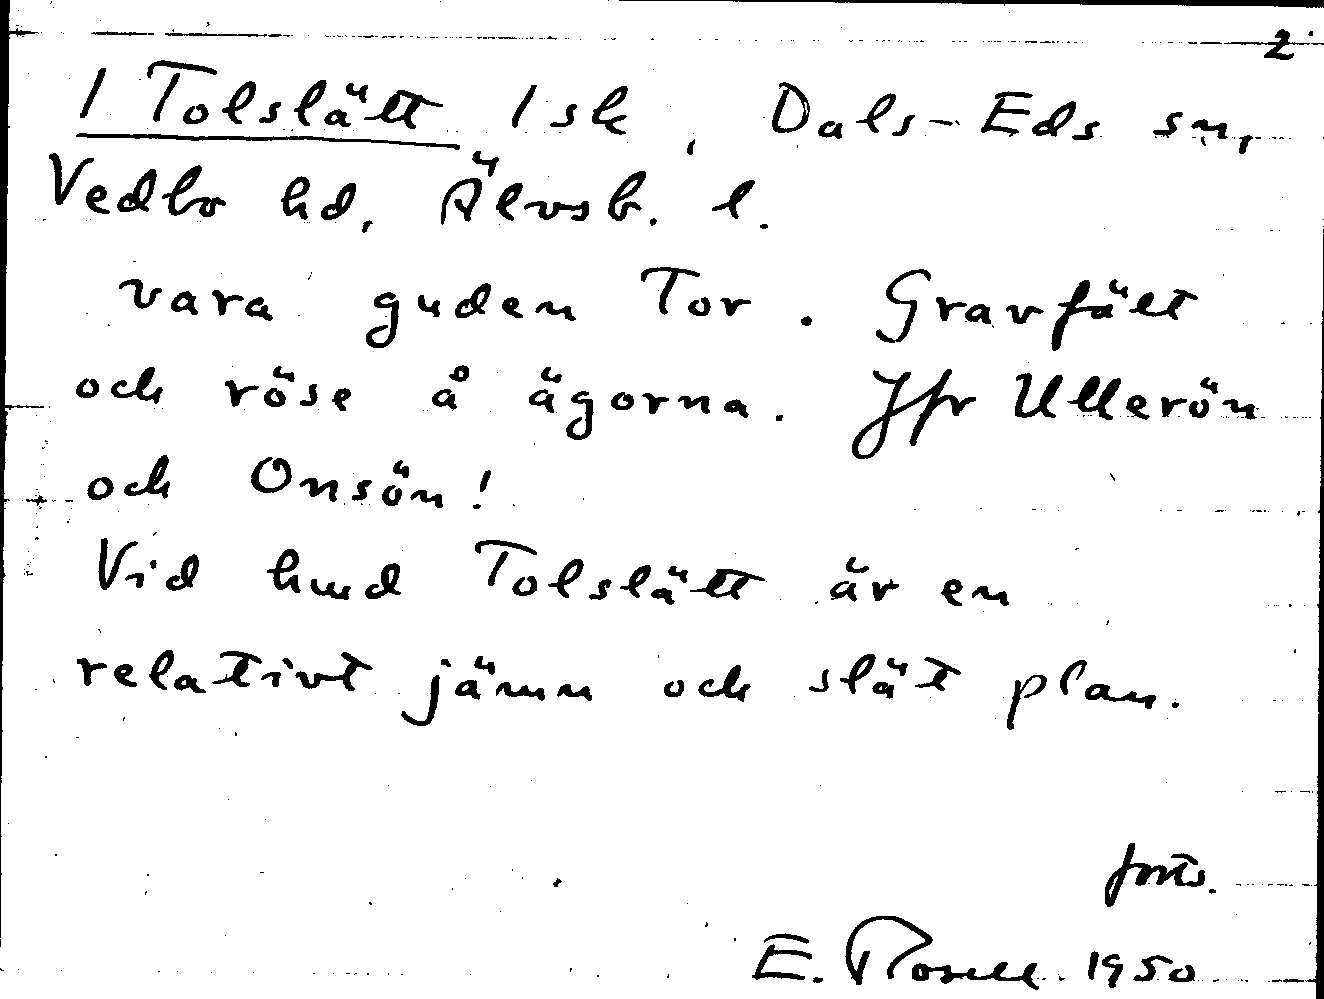 2.
1 Tolslätt 1 sk, Dals-Eds sn,
Vedbo hd, Älvsb. l.
vara guden Tor. Gravfält
och röse å ägorna. Jfr Ullerön
och Onsön!
Vid hmd Tolslätt är en
relativt jämn och slät plan.
forts.
E. Rosell 1950